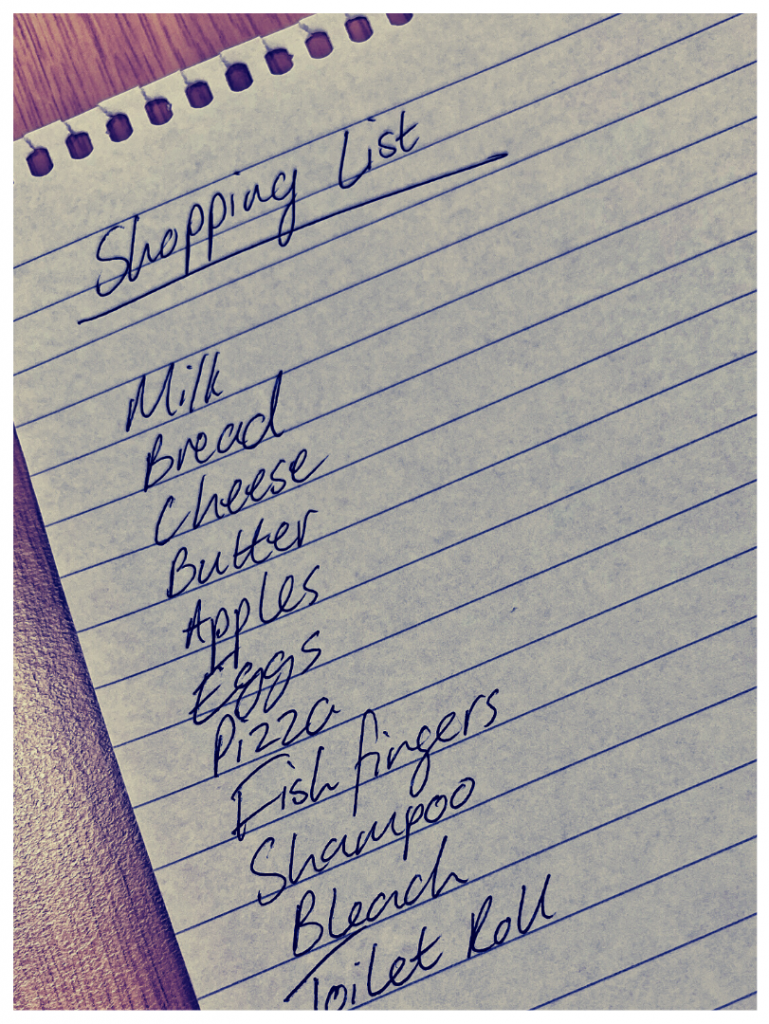 Shopping List
Milk
Bread
Cheese
Butter
Apples
Eggs
Pizza
Fish fingers
Shampoo
Bleach
Toilet Roll